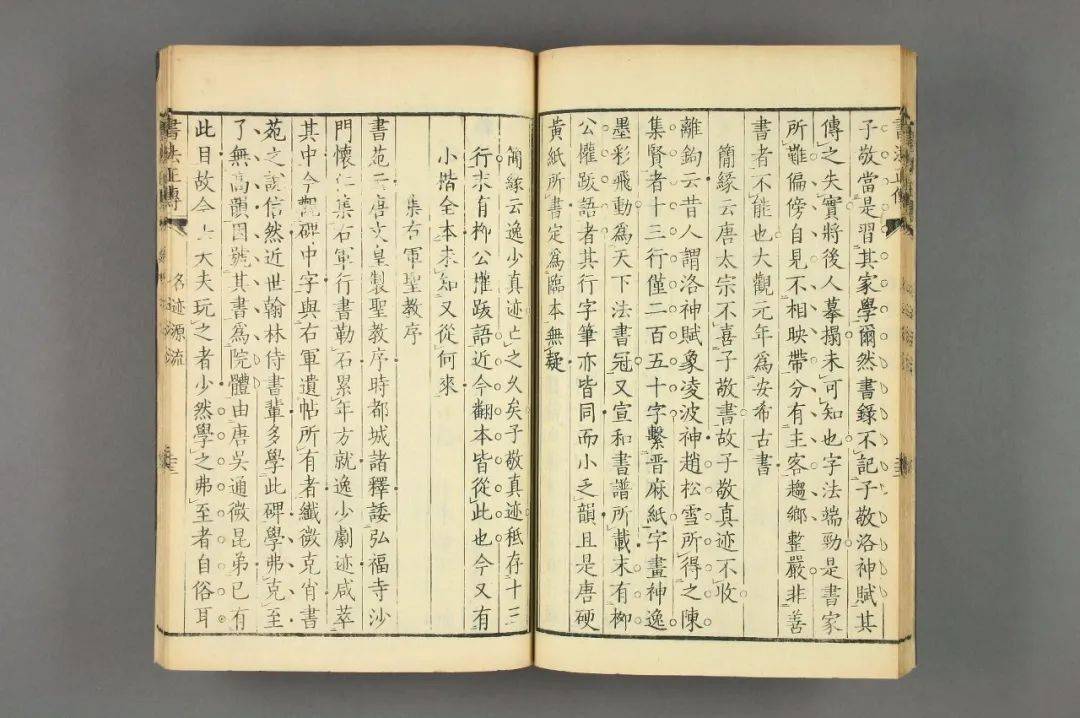 子敬當是習其家學爾然書錄不記子敬洛神賦其
傳之失實將後人摹搨未可知也字法端勁是書家
所難偏傍自見不相映帶分有主客趨鄉整嚴非善
書者不能也大觀元年為安希古書
簡緣云唐太宗不喜子敬書故子敬真迹不收
離鉤云昔人謂洛神賦象凌波神趙松雪所得之陳
集賢者十三行僅二百五十字繫晋麻紙字畫神逸
墨彩飛動為天下法書冠又宣和書譜所載末有柳
公權跋語者其行字筆亦皆同而小乏韻且是唐硬
黃紙所書定為臨本無疑
簡緣云逸少真迹亡之久矣子敬真迹秪存十三
行末有柳公權跋語近今翻本皆從此也今又有
小楷全本未知又從何來
集右軍聖教序
書苑云唐文皇製聖教序時都城諸釋諉弘福寺沙
門懷仁集右軍行書勒石累年方就逸少劇迹咸萃
其中今觀碑中字與右軍遺帖所有者纖微克肖書
苑之説信然近世翰林侍書輩多學此碑學弗克至
了無高韻因號其書為院體由唐吳通微昆弟已有
此目故今士大夫玩之者少然學之弗至者自俗耳
書法正傳
名迹源流